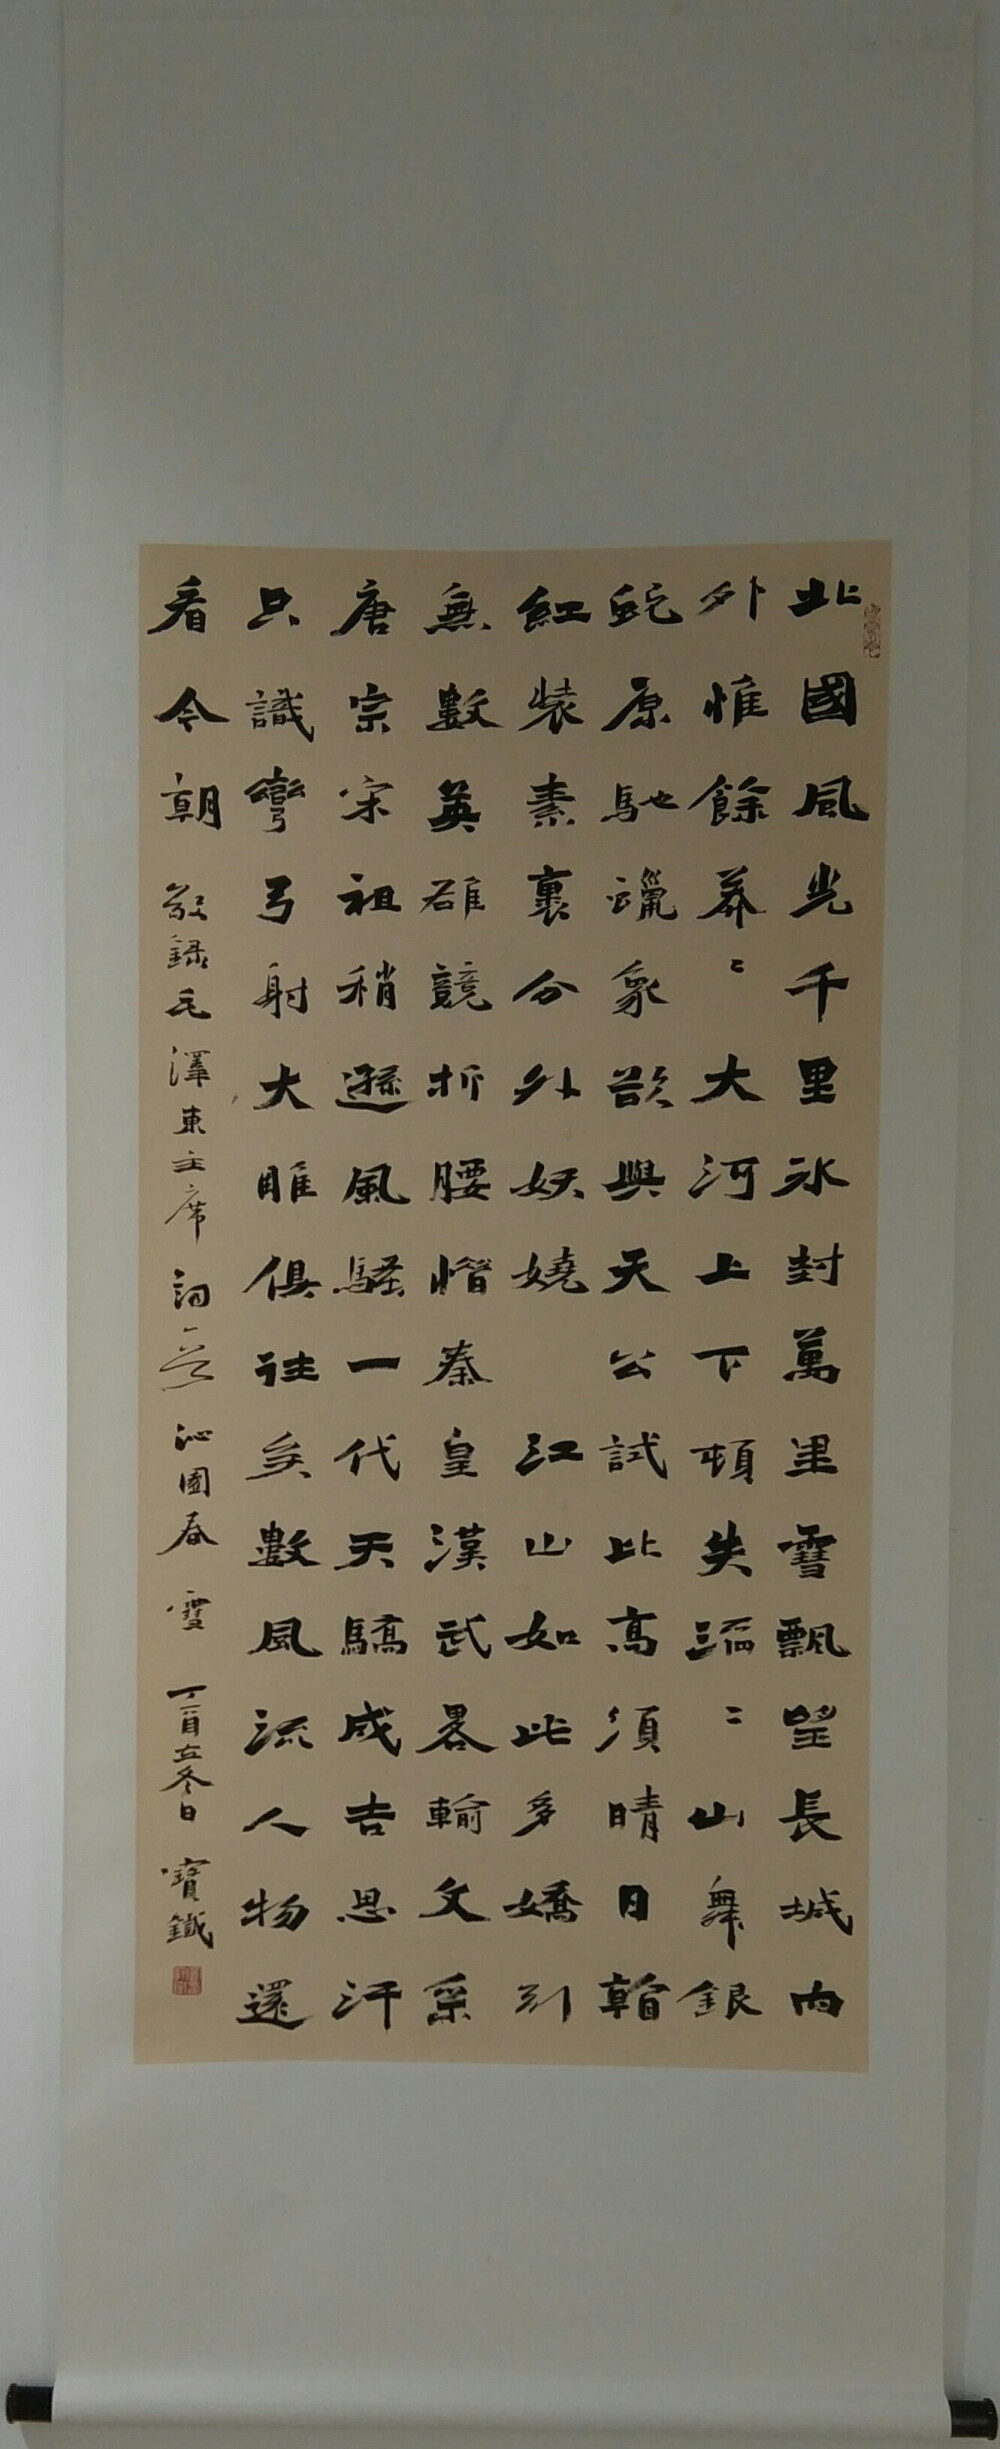 北國風光千里冰封萬里雪飄望長城內
外惟餘莽〻大河上下頓失滔〻山舞銀
蛇原馳蠟象欲與天公試比高須晴日看
紅裝素裹分外妖嬈 江山如此多嬌引
無數英雄競折腰惜秦皇漢武畧輸文采
唐宗宋祖稍遜風騷一代天驕成吉思汗
只識彎弓射大雕俱往矣數風流人物還
看今朝 敬録毛澤東主席詞 沁園春 雪 丁酉立冬日 寶鐵